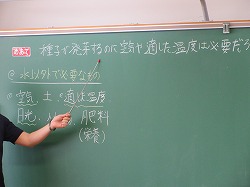 めあて 種子が発芽するのに空気や適した温度は必要だろ
◎水以外で必要なもの
・空気 土 ・適した温度
日光 肥料
(栄養)